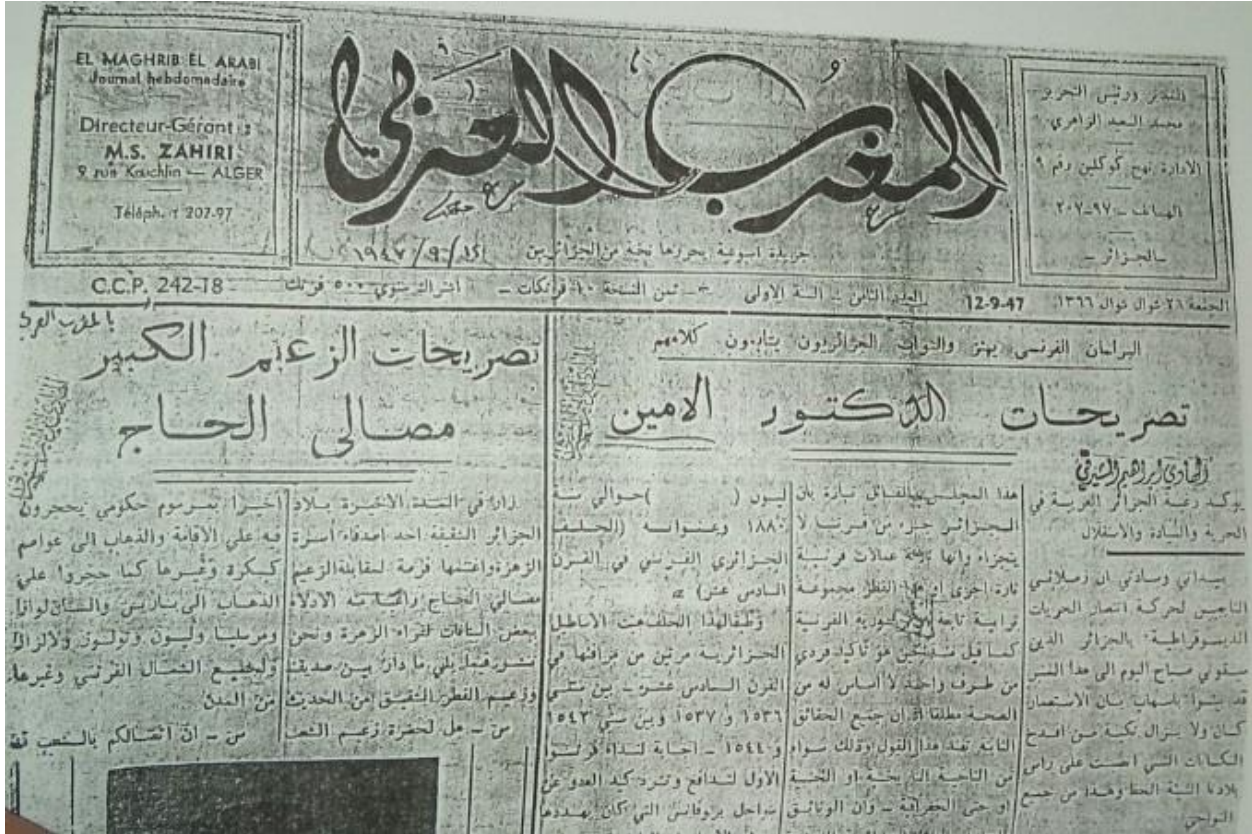 EL MAGHRIB EL ARABI
Journal hebdomadaire
Directeur-Gérant :
M.S. ZAHIRI
9 rue Kœchlin — ALGER
Téléph. : 207-97
المغرب العربي
المدير ورئيس التحرير
محمد السعيد الزاهري
الادارة نهج كوكلين رقم ٩
الهاتف — ٩٧-٢٠٧
— الجزائر —
جريدة اسبوعية يحررها نخبة من الجزائريين
الجمعة ٢٦ شوال ١٣٦٦
12-9-47
العدد الثامن — السنة الاولى
ثمن النسخة ١٠ فرنكات — اشتراك سنوي ٥٠٠ فرنك
C.C.P. 242-18
البرلمان الفرنسي يهتز والنواب الجزائريون يتابعون كلامهم
تصريحات الدكتور الامين
الهادي ابراهيم المشيرقي
يؤكد رغبة الجزائر العربية في
الحرية والسيادة والاستقلال
سيداتي وسادتي ان زملائي
الناجيين لحركة انتصار الحريات
الديموقراطية بالجزائر الذين
سبقوني صباح اليوم الى هذا المنبر
قد بينوا باسهاب بان الاستعمار
كان ولا يزال نكبة من افدح
النكبات التي على راس
بلادنا السيئة الحظ وهذا من جميع
النواحي
هذا المجلس بالقائل تارة بان
الجزائر جزء من فرنسا لا
يتجزأ وانها ثلاثة عمالات فرنسية
تارة اخرى او هذا القطر مجموعة
ترابية تابعة
هو تأكيد فردي
من طرف واحد لا أساس له من
الصحة مطلقا اذ ان جميع الحقائق
الثابتة تفند هذا القول وذلك سواء
من الناحية او
او حتى الجغرافية — وان الوثائق
ليون ( ) حوالي سنة
١٨٨٠ وعنوانه (الحلف
الجزائري الفرنسي في القرن
السادس عشر)
وطبقا لهذا الحلف
الجزائرية مرتين من مرافئها في
القرن السادس عشر — بين سنتي
١٥٣٦ و ١٥٣٧ وبين سنتي ١٥٤٣
و ١٥٤٤ — اجابة لنداء فرنسوا
الاول لتدافع وترد كيد العدو عن
سواحل بروفانس التي كان يهددها
بالمغرب العربي
تصريحات الزعيم الكبير
مصالي الحاج
زار في المدة الاخيرة بلاد
الجزائر الشقيقة احد اصدقاء أسرة
الزهرة واغتنمها فرصة لمقابلة الزعيم
مصالي الحاج منه الادلاء
ببعض لقراء الزهرة ونحن
ننشر فيما يلي ما دار بين صديقنا
وزعيم القطر الشقيق من الحديث
س — هل لحضرة زعيم الشعب
اخيرا بمرسوم حكومي يحجرون
فيه على الاقامة والذهاب الى عواصم
كبسكرة وغيرها كما حجروا علي
الذهاب الى باريس
ومرسيليا وليون وتولون
ولجميع الشمال الفرنسي وغيرها
من المدن
س — ان اتصالكم بالشعب